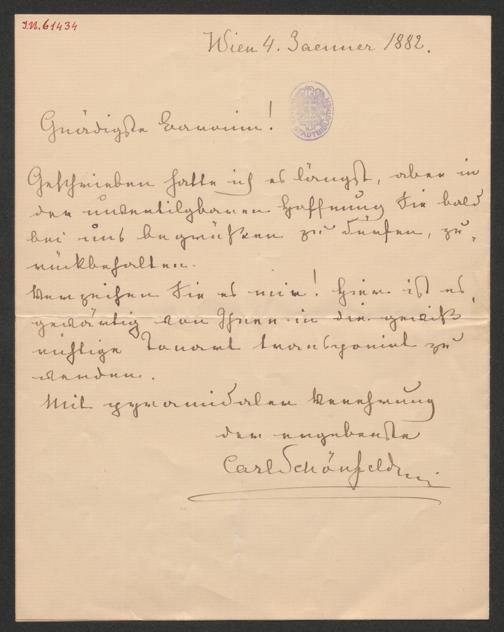 I.N. 61434
Wien 4. Jaenner 1882.
Gnädigste Baronin!
Geschrieben hatte ich es längst, aber in
der unvertilgbaren Hoffnung Sie bald
bei uns begrüßen zu dürfen, zu,
rückbehalten.
Verzeihen Sie es mir! Hier ist es,
gewärtig von Ihnen in die gewiß
richtige Tonart transponirt zu
werden.
Mit pyramidaler Verehrung
der ergebenste
Carl Schönfeld